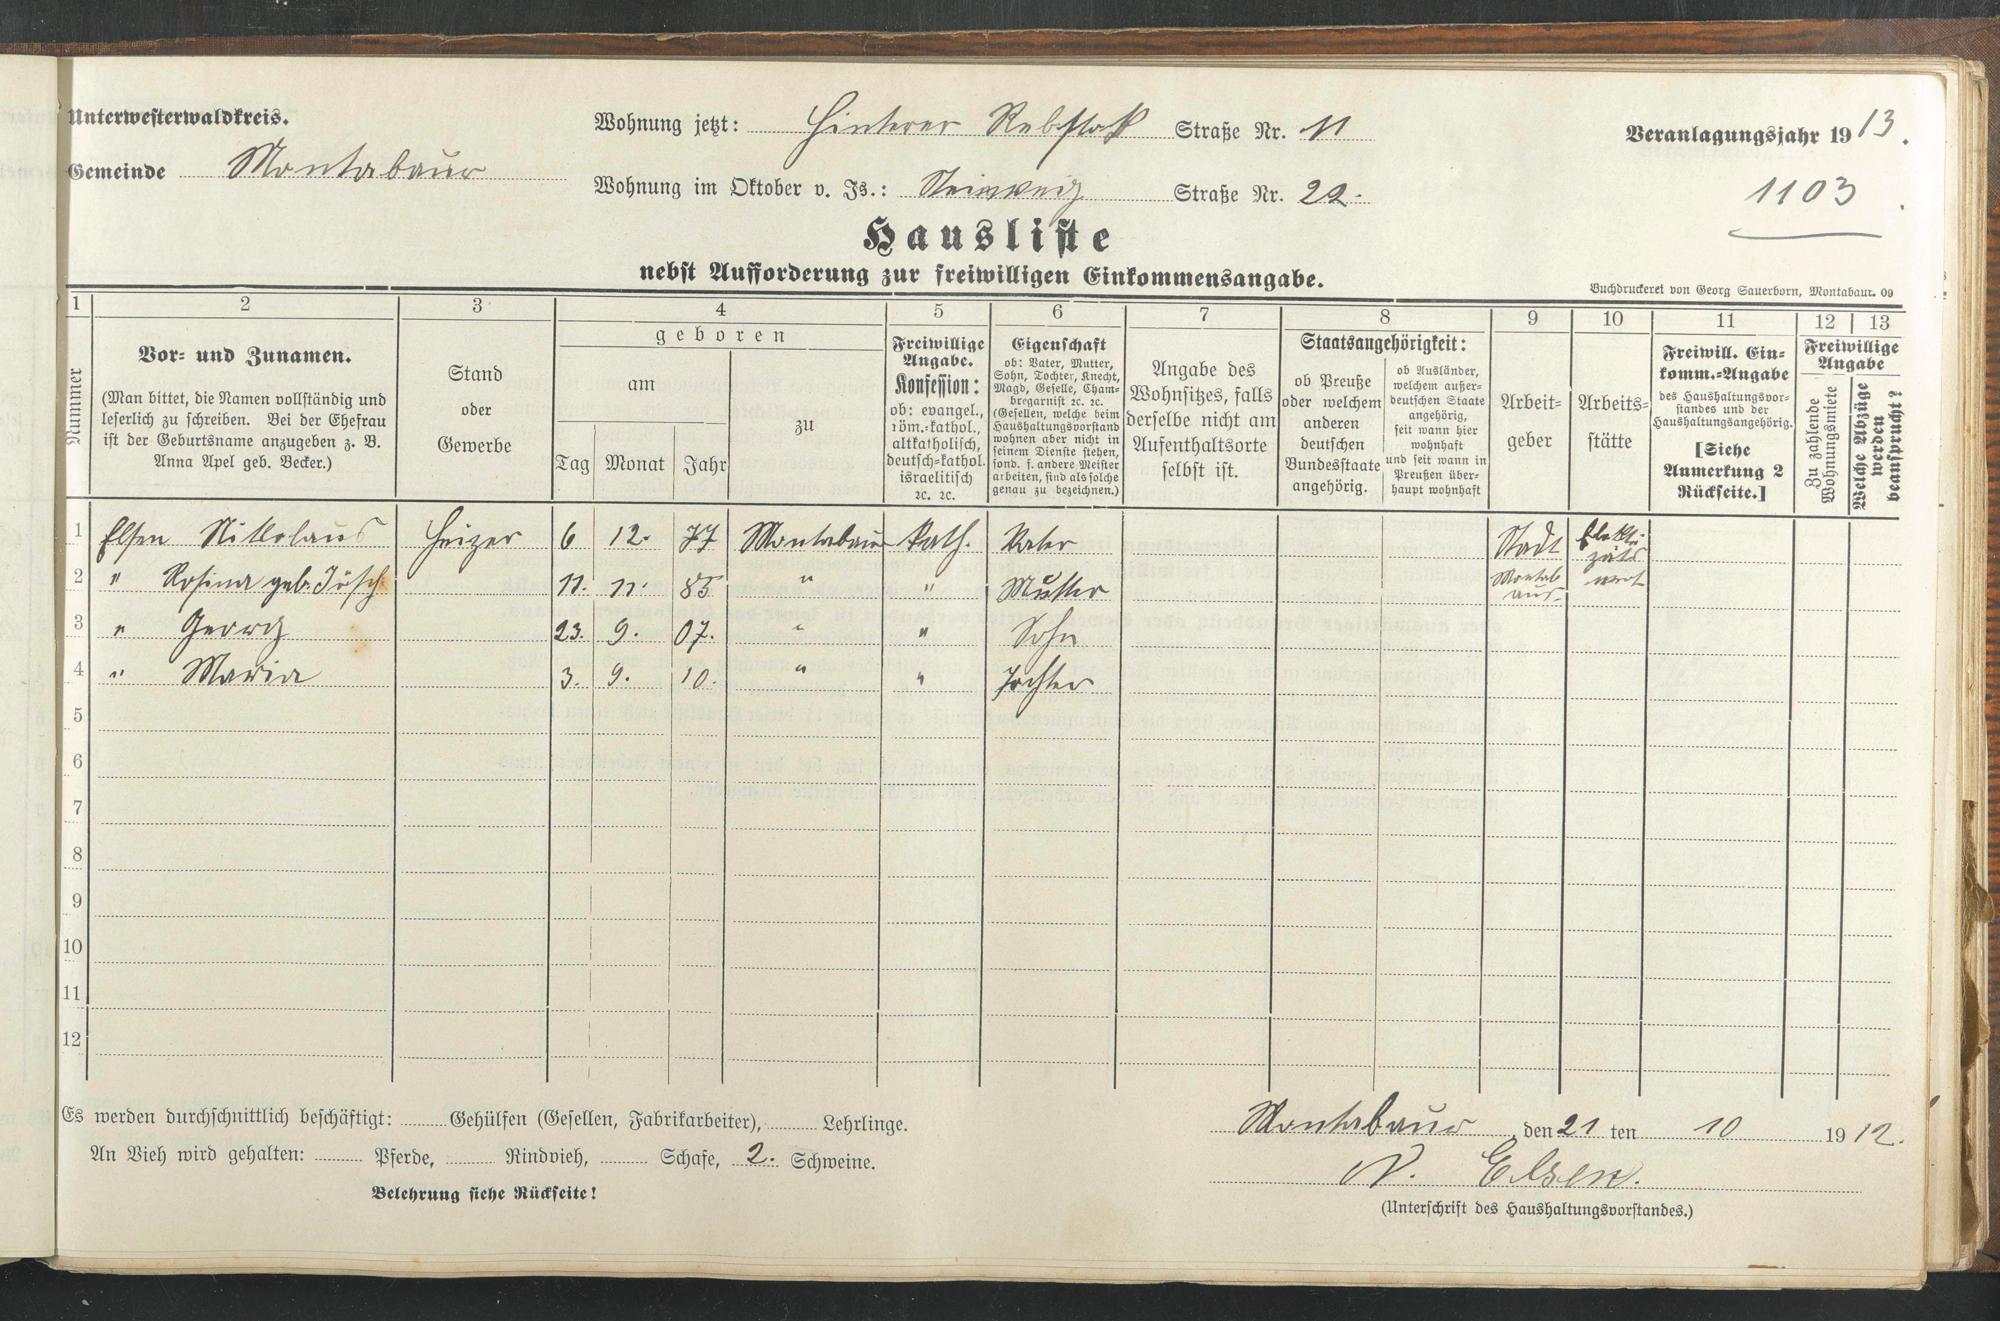 Unterwesterwaldkreis.
Gemeinde Montabaur
Wohnung jetzt: Hinterer Rebstock Straße Nr. 11
Wohnung im Oktober v. Js.: Steinweg Straße Nr. 22.
Veranlagungsjahr 1913.
1103
Hausliste
nebst Aufforderung zur freiwilligen Einkommensangabe.
Buchdruckerei von Georg Sauerborn, Montabaur. 09
1 2 3 4 5 6 7 8 9 10 11 12 13
Nummer
Vor- und Zunamen.
(Man bittet, die Namen vollständig und
leserlich zu schreiben. Bei der Ehefrau
ist der Geburtsname anzugeben z. B.
Anna Apel geb. Becker.)
Stand
oder
Gewerbe
geboren
am
Tag Monat Jahr
zu
Freiwillige
Angabe.
Konfession:
ob: evangel.,
röm.-kathol.,
altkatholisch,
deutsch-kathol.
israelitisch
ꝛc. ꝛc.
Eigenschaft
ob: Vater, Mutter,
Sohn, Tochter, Knecht,
Magd, Geselle, Cham-
bregarnist ꝛc. ꝛc.
(Gesellen, welche beim
Haushaltungsvorstand
wohnen aber nicht in
seinem Dienste stehen,
sond. f. andere Meister
arbeiten, sind als solche
genau zu bezeichnen.)
Angabe des
Wohnsitzes, falls
derselbe nicht am
Aufenthaltsorte
selbst ist.
Staatsangehörigkeit:
ob Preuße
oder welchem
anderen
deutschen
Bundesstaate
angehörig.
ob Ausländer,
welchem außer-
deutschen Staate
angehörig,
seit wann hier
wohnhaft
und seit wann in
Preußen über-
haupt wohnhaft
Arbeit-
geber
Arbeits-
stätte
Freiwill. Ein-
komm.-Angabe
des Haushaltungsvor-
standes und der
Haushaltungsangehörig.
[Siehe
Anmerkung 2
Rückseite.]
Freiwillige
Angabe
Zu zahlende
Wohnungsmiete
Welche Abzüge
werden
beansprucht?
1 Elsen Nikolaus Heizer 6 12. 77 Montabaur kath. Vater Stadt Elektri-
zäts
2 " Rosina geb. Jösch 11. 11. 85 " " Mutter Montab
aur. werk
3 " Georg 23. 9. 07. " " Sohn
4 " Maria 3. 9. 10. " " Tochter
5
6
7
8
9
10
11
12
Es werden durchschnittlich beschäftigt: Gehülfen (Gesellen, Fabrikarbeiter), Lehrlinge.
An Vieh wird gehalten: Pferde, Rindvieh, Schafe, 2. Schweine.
Belehrung siehe Rückseite!
Montabaur, den 21 ten 10 1912.
N. Elsen.
(Unterschrift des Haushaltungsvorstandes.)